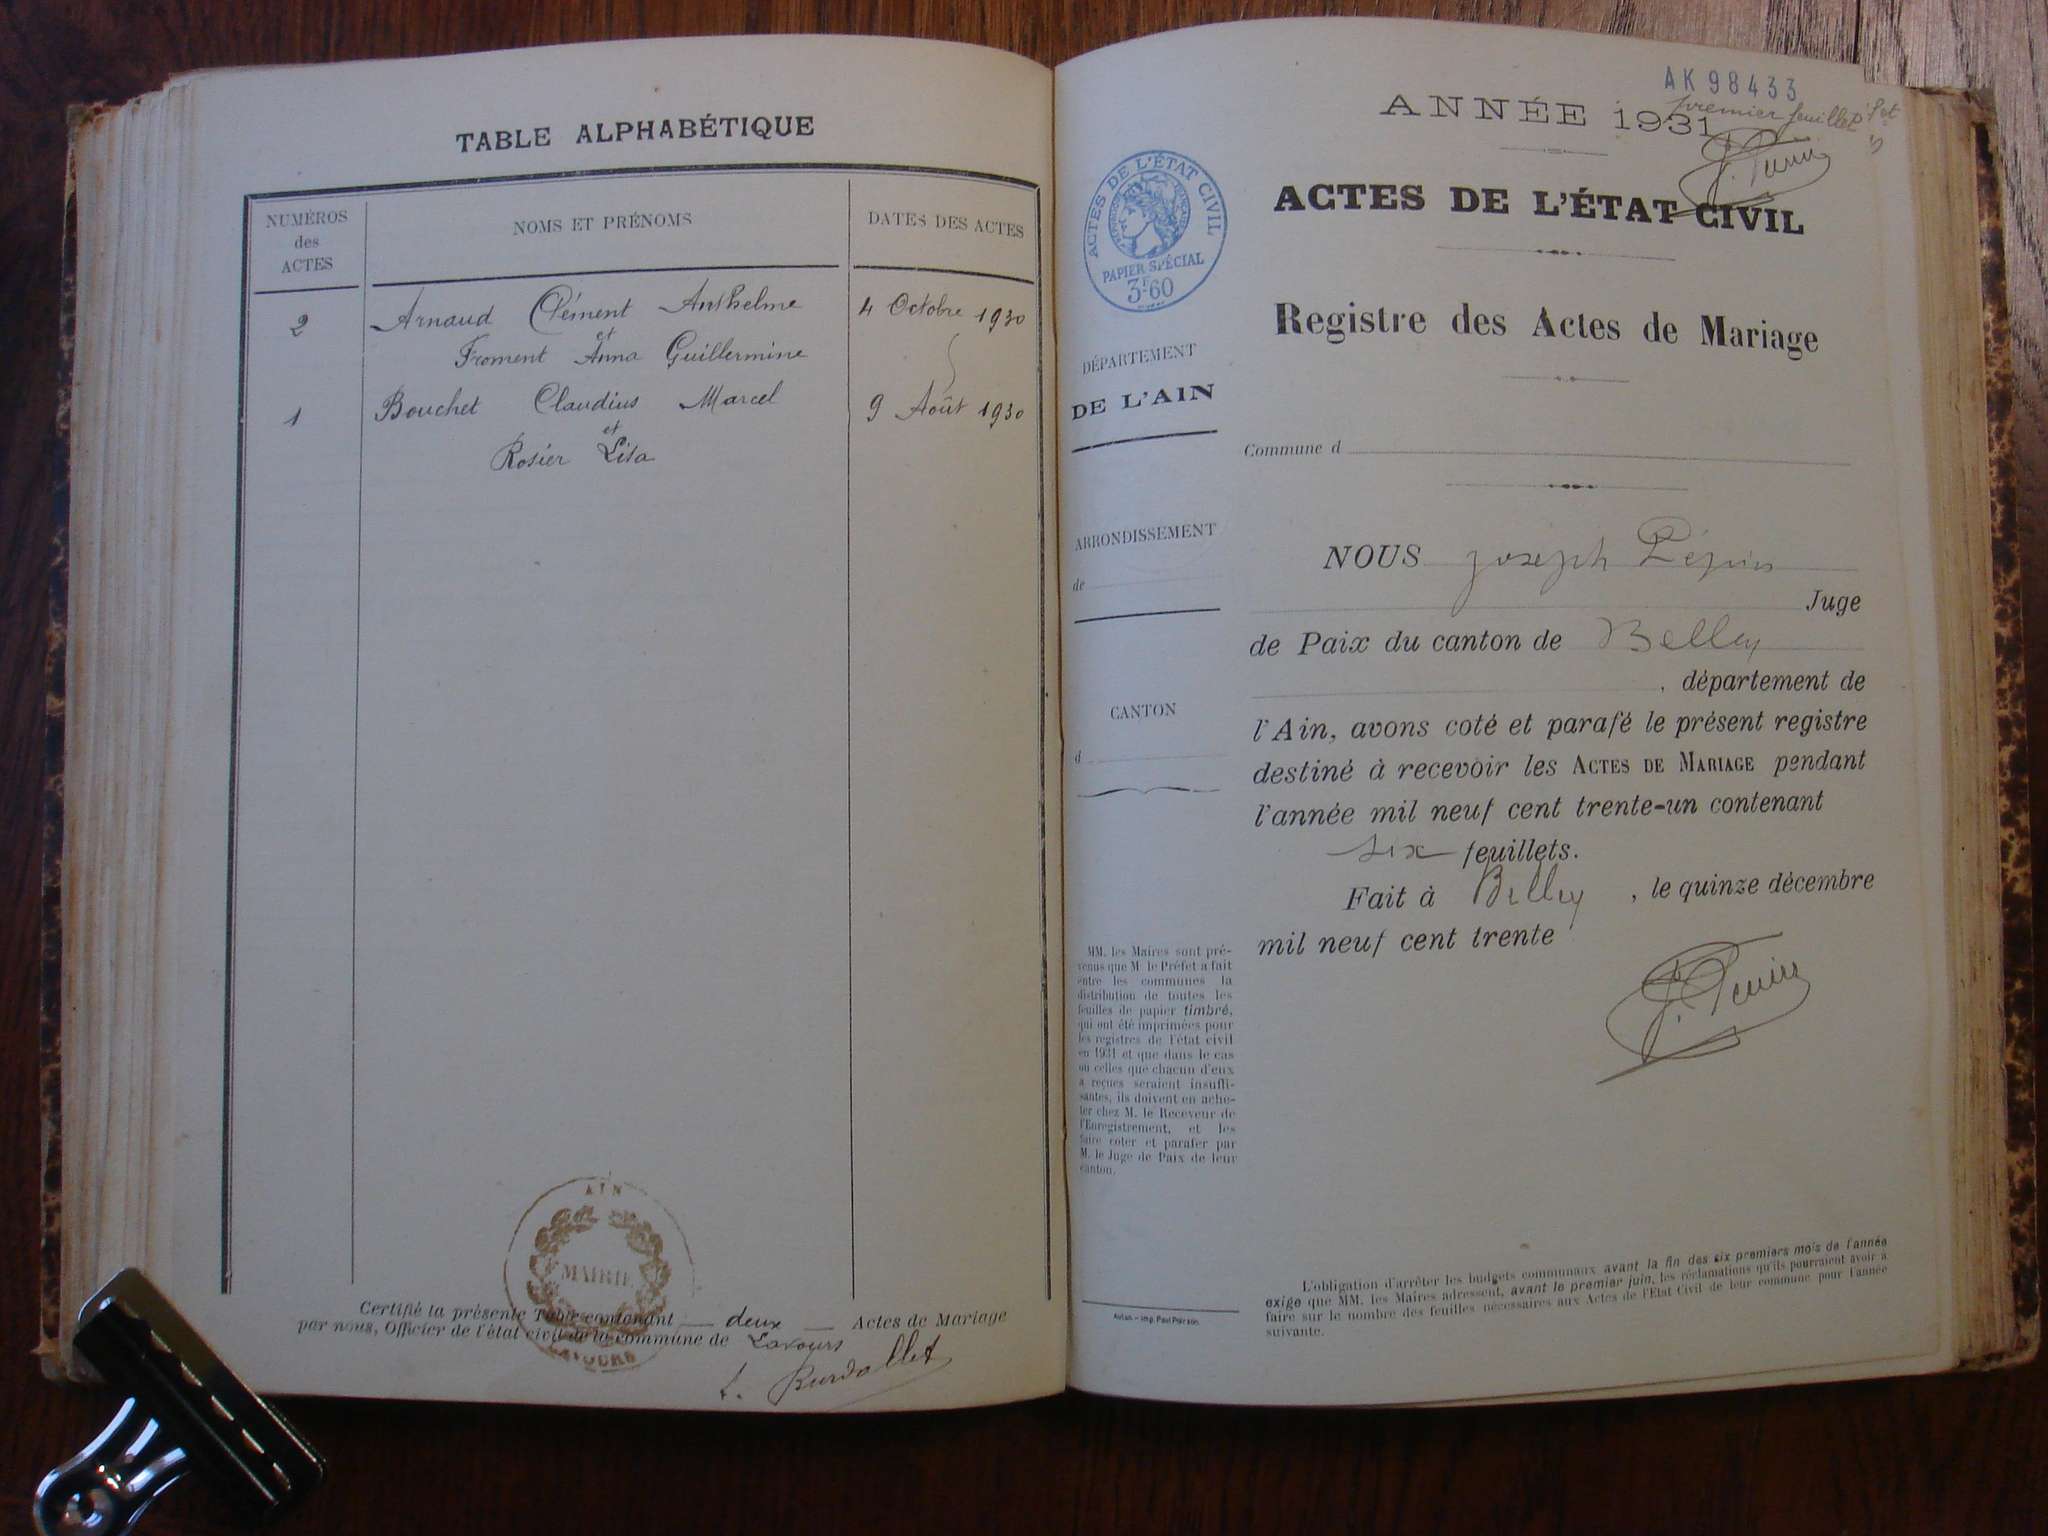 TABLE ALPHABÉTIQUE
NUMÉROS
des
ACTES
NOMS ET PRÉNOMS
DATES DES ACTES
2 Arnaud Clément Anthelme 4 Octobre 1930
et
Froment Anna Guillermine
1 Bouchet Claudius Marcel 9 Août 1930
et
Rosier Lisa
AIN
MAIRIE
LAVOURS
Certifié la présente Table contenant deux Actes de Mariage
par nous, Officier de l'état civil de la commune de Lavours
L. Burdallet
AK 98433
ANNÉE 1931
premier feuillet
ACTES DE L'ÉTAT CIVIL
PAPIER SPÉCIAL
3F60
ACTES DE L'ÉTAT CIVIL
Registre des Actes de Mariage
DÉPARTEMENT
DE L'AIN
ARRONDISSEMENT
de
CANTON
d
Commune d
NOUS Joseph Pépin
Juge
de Paix du canton de Belley
, département de
l'Ain, avons coté et parafé le présent registre
destiné à recevoir les ACTES DE MARIAGE pendant
l'année mil neuf cent trente-un contenant
six feuillets.
Fait à Belley, le quinze décembre
mil neuf cent trente
MM. les Maires sont pré-
venus que M. le Préfet a fait
entre les communes la
distribution de toutes les
feuilles de papier timbré,
qui ont été imprimées pour
les registres de l'état civil
en 1931 et que dans le cas
où celles que chacun d'eux
a reçues seraient insuffi-
santes, ils doivent en ache-
ter chez M. le Receveur de
l'Enregistrement, et les
faire coter et parafer par
M. le Juge de Paix de leur
canton.
Autun. - Imp. Paul Poirson
L'obligation d'arrêter les budgets communaux avant la fin des six premiers mois de l'année
exige que MM. les Maires adressent, avant le premier juin, les réclamations qu'ils pourraient avoir à
faire sur le nombre des feuilles nécessaires aux Actes de l'Etat Civil de leur commune pour l'année
suivante.